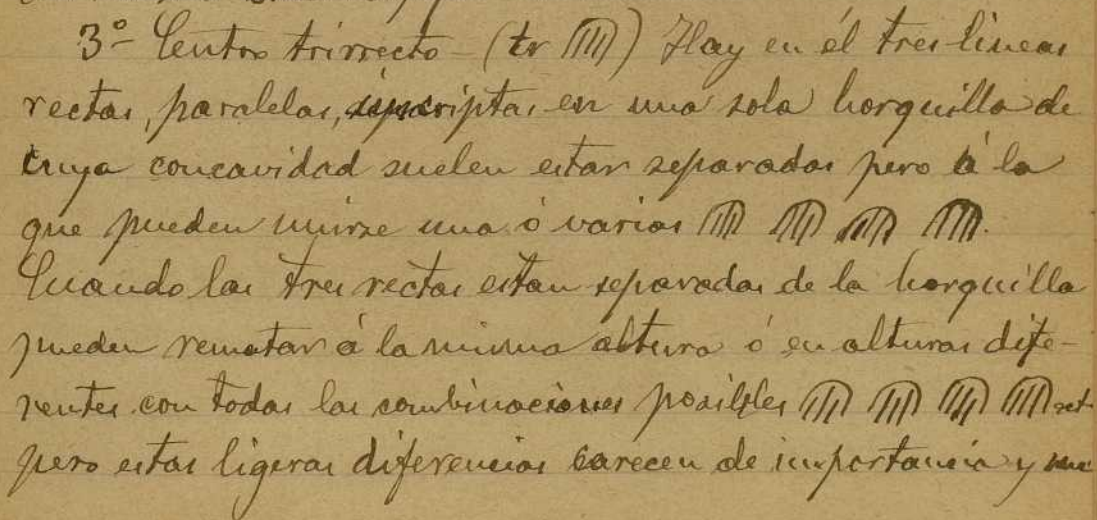 3º- Centro trirrecto - (tr) Hay en él tres lineas
rectas, paralelas, inscriptas en una sola horquilla de
cuya concavidad suelen estar separadas pero á la
que pueden unirse una ó varias
Cuando las tres rectas estan separadas de la horquilla
pueden rematar á la misma altura ó en alturas dife-
rentes con todas las combinaciones posibles
pero estas ligeras diferencias carecen de importancia y